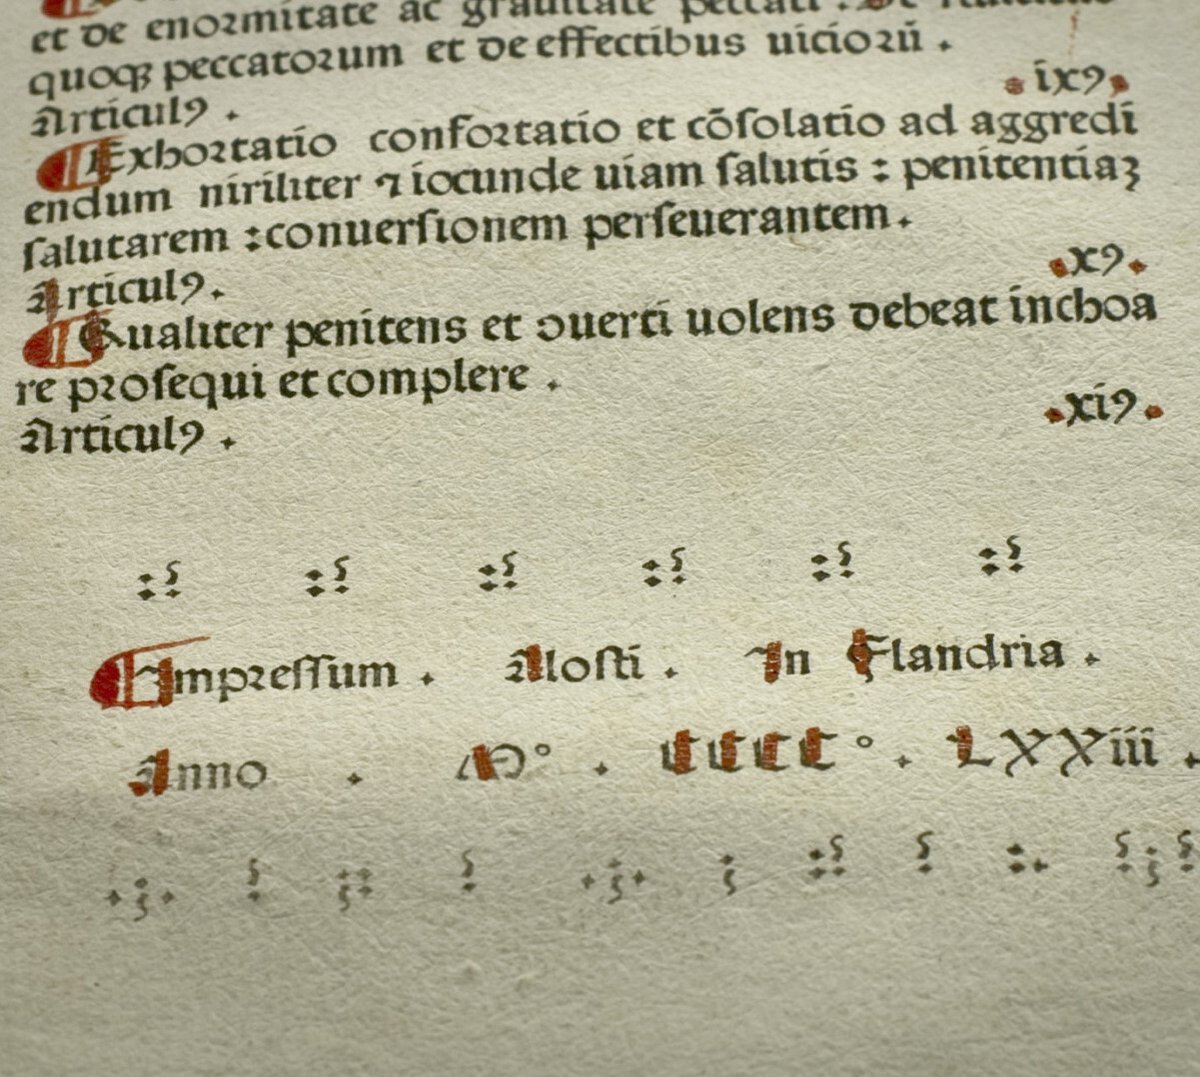 et de enormitate ac grauitate peccati . De
quoqꝫ peccatorum et de effectibus uicioꝛū .
.ixꝰ.
Articulꝰ .
¶ Exhoꝛtatio confoꝛtatio et cōſolatio ad aggredi
endum niriliter ⁊ iocunde uiam ſalutis : penitentiaꝫ
ſalutarem : conuerſionem perſeuerantem .
.xꝰ.
Articulꝰ .
¶ Qualiter penitens et ꝯuerti uolens debeat inchoa
re pꝛoſequi et complere .
.xiꝰ.
Articulꝰ .
¶ Impꝛeſſum . Aloſti . In Flandria .
Anno . M° . CCCC° . LXXiii .